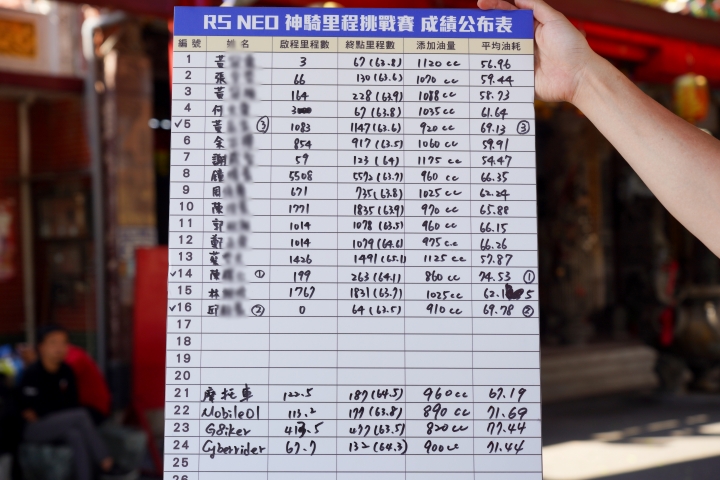 RS NEO 神騎里程挑戰賽 成績公布表
編號 姓名 啟程里程數 終點里程數 添加油量 平均油耗
1 黃 3 67 (63.8) 1120 cc 56.96
2 張 66 130 (63.6) 1070 cc 59.44
3 黃 164 228 (63.9) 1088 cc 58.73
4 何 3 67 (63.8) 1035 cc 61.64
✓5 黃 ③ 1083 1147 (63.6) 920 cc 69.13 ③
6 余 854 917 (63.5) 1060 cc 59.91
7 謝 59 123 (64) 1175 cc 54.47
8 鍾 5508 5572 (63.7) 960 cc 66.35
9 671 735 (63.8) 1025 cc 62.24
10 陳 1771 1835 (63.9) 970 cc 65.88
11 郭 1014 1078 (63.5) 960 cc 66.15
12 鄭 1014 1079 (64.6) 975 cc 66.26
13 葉 1426 1491 (65.1) 1125 cc 57.87
✓14 陳 ① 199 263 (64.1) 860 cc 74.53 ①
15 林 1767 1831 (63.7) 1025 cc 62.15
✓16 邱 ② 0 64 (63.5) 910 cc 69.78 ②
17
18
19
20
21 摩托車 122.5 187 (64.5) 960 cc 67.19
22 Mobile01 113.2 177 (63.8) 890 cc 71.69
23 G8iker 413.5 477 (63.5) 820 cc 77.44
24 Cyberrider 67.7 132 (64.3) 900 cc 71.44
25
26